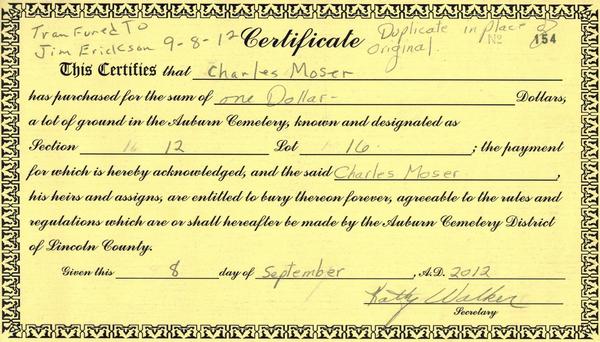 Tranfured To
Jim Erickson 9-8-12
Certificate
Duplicate in place of
Original.
No 154
This Certifies that Charles Moser
has purchased for the sum of one Dollar- Dollars,
a lot of ground in the Auburn Cemetery, known and designated as
Section 12 Lot 16 ; the payment
for which is hereby acknowledged, and the said Charles Moser
his heirs and assigns, are entitled to bury thereon forever, agreeable to the rules and
regulations which are or shall hereafter be made by the Auburn Cemetery District
of Lincoln County.
Given this 8 day of September , A.D. 2012
Katty Walker
Secretary